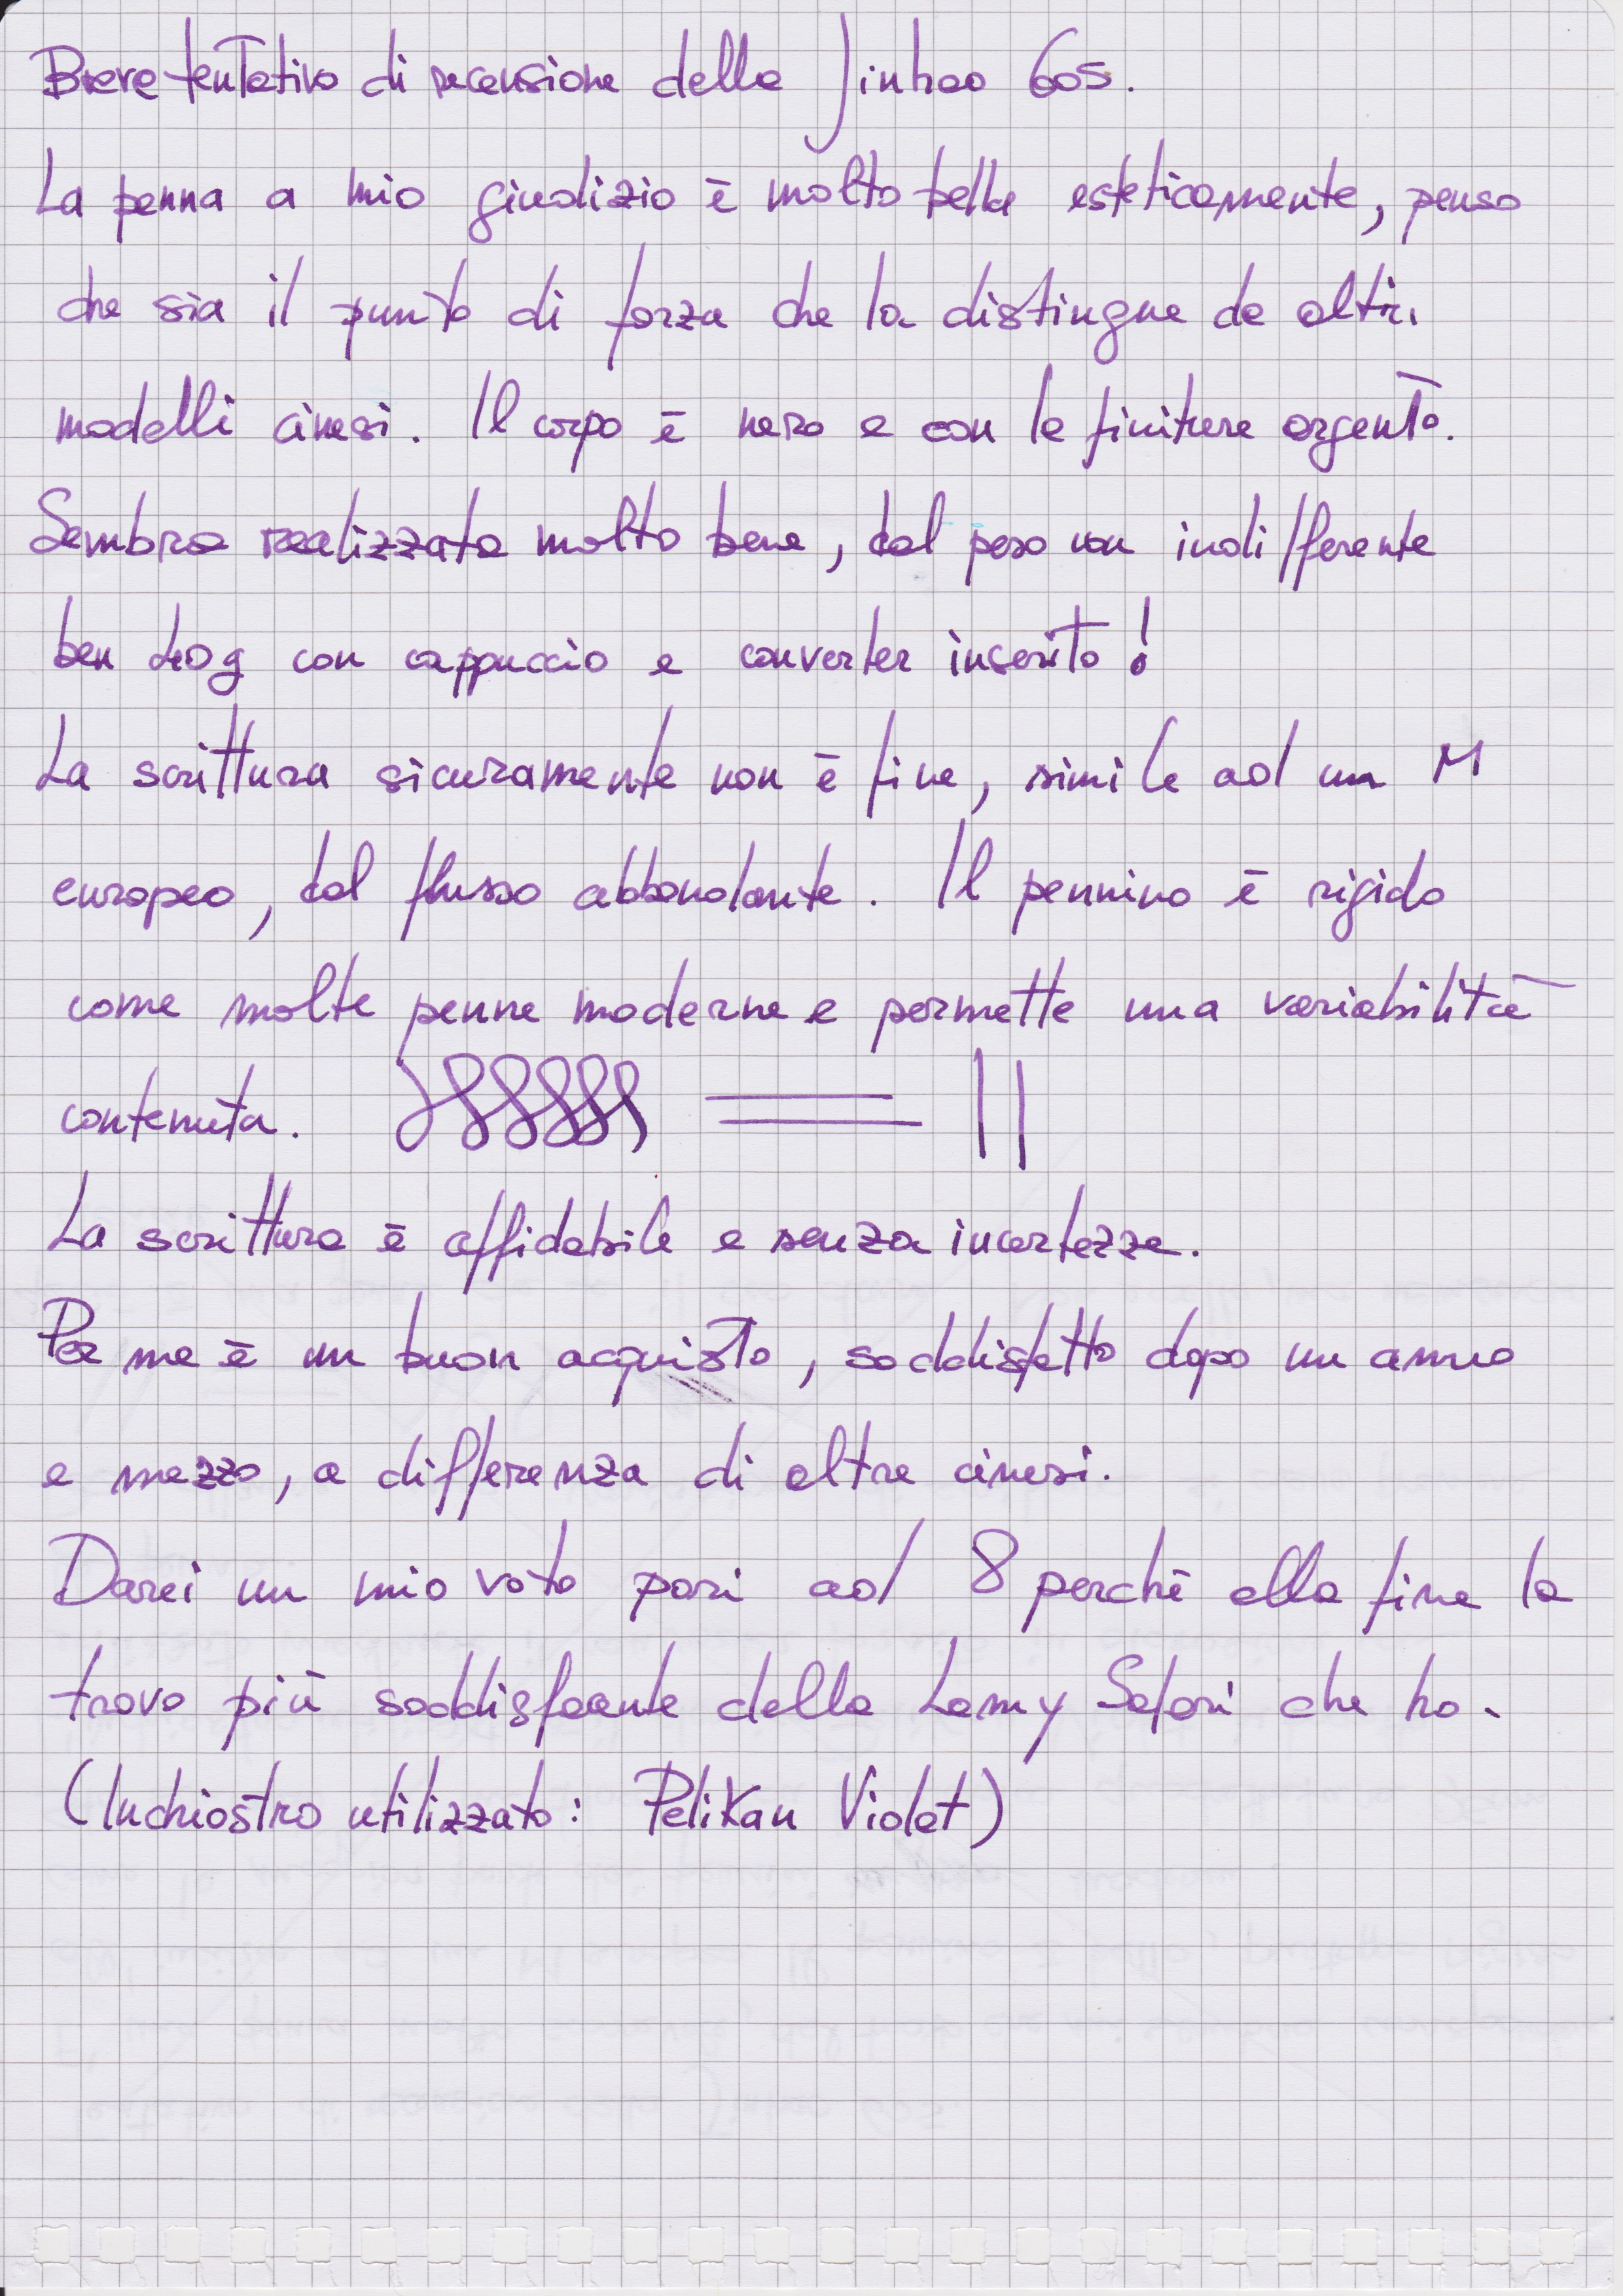 Breve tentativo di recensione della Jinhao 605.
La penna a mio giudizio è molto bella esteticamente, penso
che sia il punto di forza che la distingue da altri
modelli cinesi. Il corpo è nero e con le finiture argento.
Sembra realizzata molto bene, dal peso non indifferente
ben 40g con cappuccio e converter inserito!
La scrittura sicuramente non è fine, simile ad un M
europeo, dal flusso abbondante. Il pennino è rigido
come molte penne moderne e permette una variabilità
contenuta.
La scrittura è affidabile e senza incertezze.
Per me è un buon acquisto, soddisfatto dopo un anno
e mezzo, a differenza di altre cinesi.
Darei un mio voto pari ad 8 perchè alla fine la
trovo più soddisfacente della Lamy Safari che ho.
(Inchiostro utilizzato: Pelikan Violet)